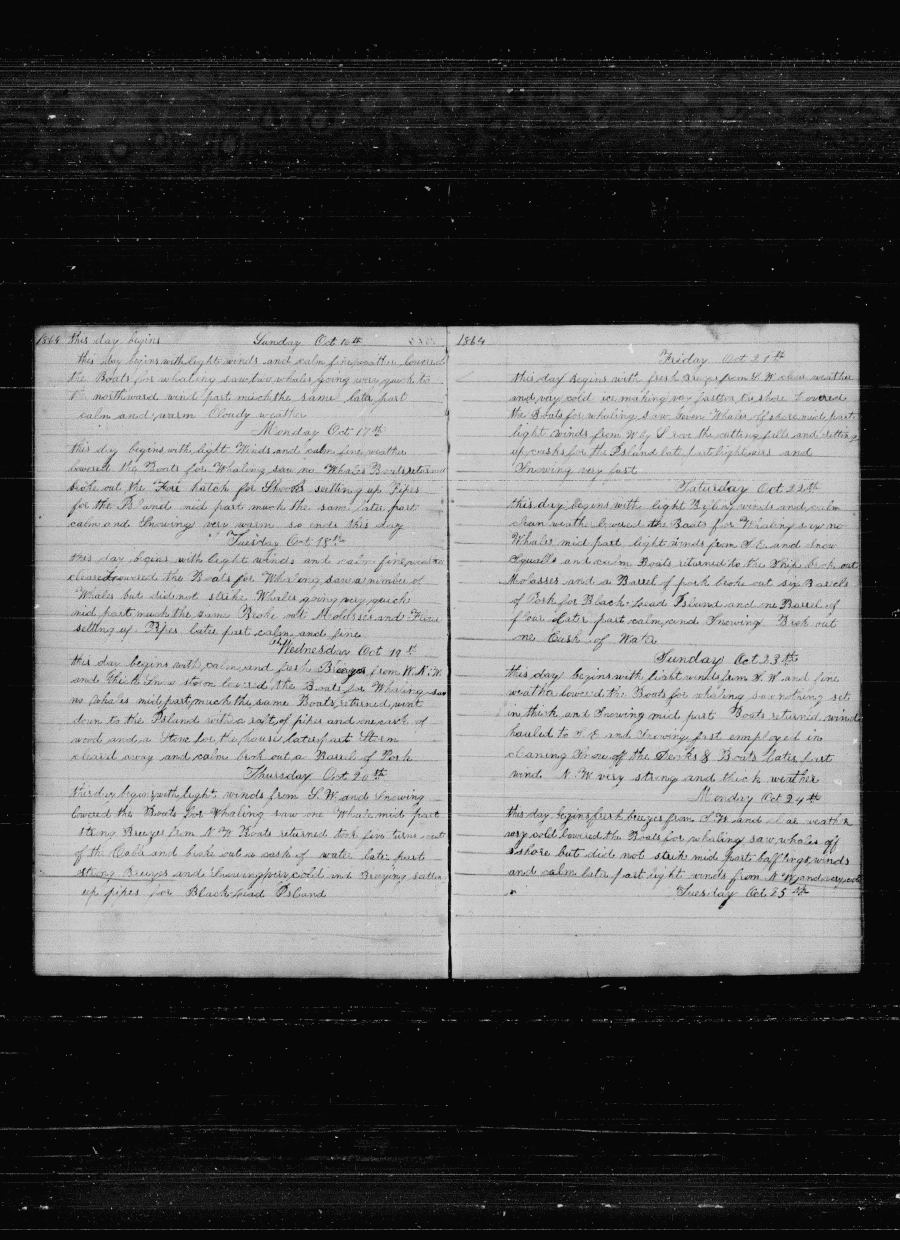 1864 this day begins Sunday Oct 16th
this day begins with light winds and calm fine weather lowered
the Boats for whaling saw two whales going very quick to
the northward wind part much the same later part
calm and warm Cloudy weather
Monday Oct 17th
this day begins with light Winds and calm fine weather
lowered the Boats for Whaling saw no Whales Boats returned
broke out the Fore hatch for Shooks setting up Pipes
for the Island mid part much the same later part
calm and Snowing very warm so ends this day
Tuesday Oct 18th
this day begins with light winds and calm fine weather
cleared lowered the Boats for Whaling saw a number of
Whales but did not strike Whales going very quick
mid part much the same Broke out Molasses and Flour
setting up Pipes later part calm and fine
Wednesday Oct 19th
this day begins with calm and fresh Breezes from W.N.W.
and thick snow storm lowered the Boats for Whaling saw
no Whales mid part much the same Boats returned went
down to the Island with a raft of pipes and one cask of
wood and a Stove for the house later part Storm
cleared away and calm brok out a Barrel of Pork
Thursday Oct 20th
this day begins with light winds from S.W. and Snowing
lowered the Boats for Whaling saw one Whale mid part
strong Breezes from N W Boats returned took five turns out
of the Cable and broke out a cask of water late part
strong Breezes and Snowing very cold and setting
up pipes for Black Lead Island
1864
Friday Oct 21th
this day Begins with fresh Breezes from S. W. clear weather
and very cold ice making very fast on the shore Lowered
the Boats for whaling saw Whales off shore mid part
light winds from W by S and setting
up casks for the Island last part light airs and
Snowing very fast
Saturday Oct 22th
this day begins with light winds and calm
clean weather lowered the Boats for Whaling saw no
Whales mid part light winds from S.E. and Snow
Squalls and calm Boats returned to the Ship brok out
Molasses and a Barrel of pork broke out six Barels
of Pork for Black Lead Island and one Barrel of
flour Later part calm and Snowing Brok out
one Cask of Water
Sunday Oct 23th
this day begins with light winds from N. W. and fine
weather lowered the Boats for whaling saw nothing set
in thick and Snowing mid part Boats returned wind
hauled to S. E and Snowing fast employed in
cleaning Snow off the Decks & Boats later part
wind N. W very strong and thick weather
Monday Oct 24th
this day begins fresh breezes from S W and clear weather
very cold lowered the Boats for whaling saw whales off
shore but did not strike mid part baffling winds
and calm late part light winds from N. W. and very cold
Tuesday Oct 25th